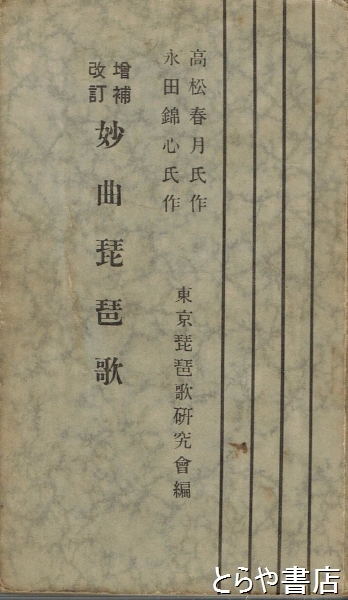 高松春月氏作
永田錦心氏作
東京琵琶歌研究會編
增補
改訂
妙曲琵琶歌
とらや書店